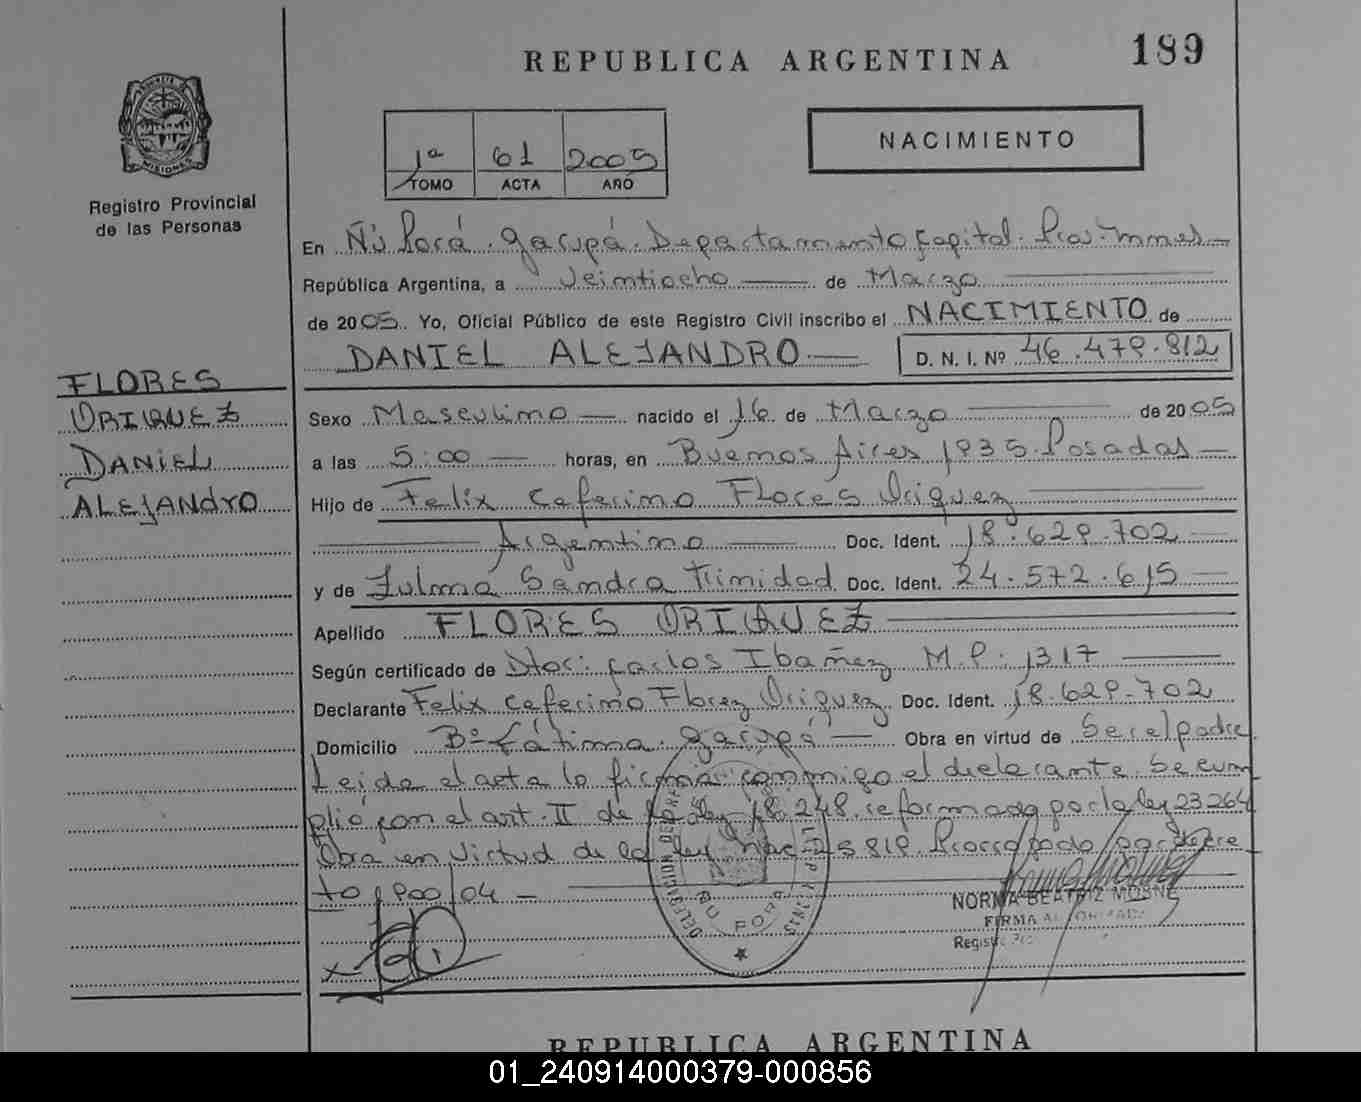 REPUBLICA ARGENTINA 189
MISIONES
Registro Provincial
de las Personas
1ª 61 2005
TOMO ACTA AÑO
NACIMIENTO
En Ñu Porá. Garupá. Departamento Capital. Pcia. Mnes
República Argentina, a veintiocho de Marzo
de 2005. Yo, Oficial Público de este Registro Civil inscribo el NACIMIENTO de
DANIEL ALEJANDRO D. N. I. Nº 46.479.812
FLORES
ORIQUEZ
DANIEL
ALEJANDRO
Sexo Masculino nacido el 16 de Marzo de 2005
a las 5:00 horas, en Buenos Aires 1935 Posadas
Hijo de Felix Ceferino Flores Oriquez
Argentino Doc. Ident. 18.629.702
y de Zulma Sandra Trinidad Doc. Ident. 24.572.615
Apellido FLORES ORIQUEZ
Según certificado de Dtor: Carlos Ibañez M.P. 1317
Declarante Felix Ceferino Florez Oriquez Doc. Ident. 18.629.702
Domicilio Bº Fátima. Garupá Obra en virtud de Ser el padre
Leida el acta la firma conmigo el declarante. Se cum
plió con el art. II de la ley 18.248. reformada por la ley 23264
Obra en virtud de la ley Nac 25819 Prorrogado por decre
to 1900/04
DELEGACION
ÑU PORA
NORMA BEATRIZ
FIRMA AUTORIZADA
REPUBLICA ARGENTINA
01_240914000379-000856